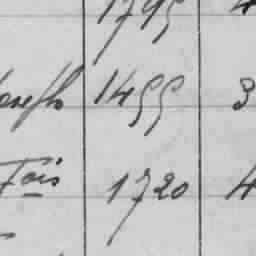 1795 4
Joseph 1455 3
Fois 1720 4